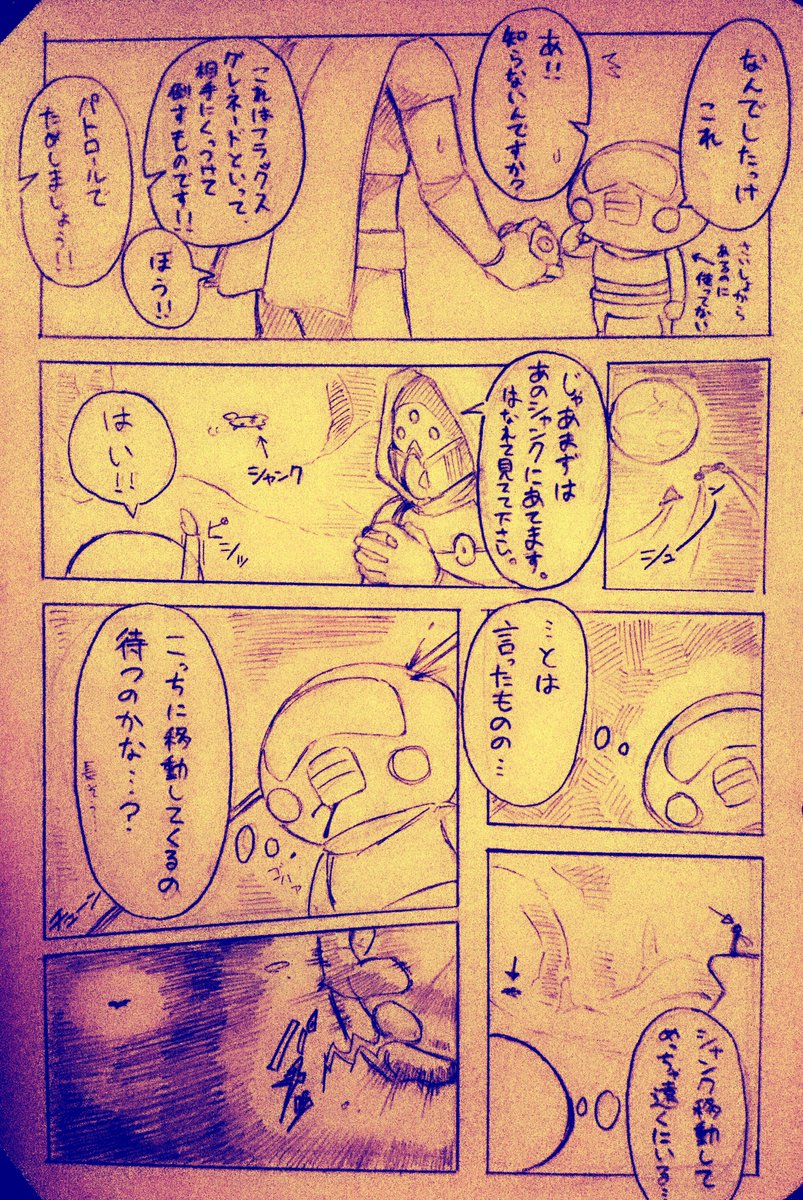 なんでしたっけ
これ
さいしょから
あるのに
使ってない
あ!!
知らないんですか?
これはフラックス
グレネードといって、
相手にくっつけて
倒すものです!!
ほう!!
パトロールで
ためしましょう!!
シュ
ン
じゃあまずは
あのシャンクにあてます。
はなれて見てて下さい。
シャンク
はい!!
ピシッ
…とは
言ったものの…
こっちに移動してくるの
待つのかな…?
チュン
シャンク移動して
めっちゃ遠くにいる…